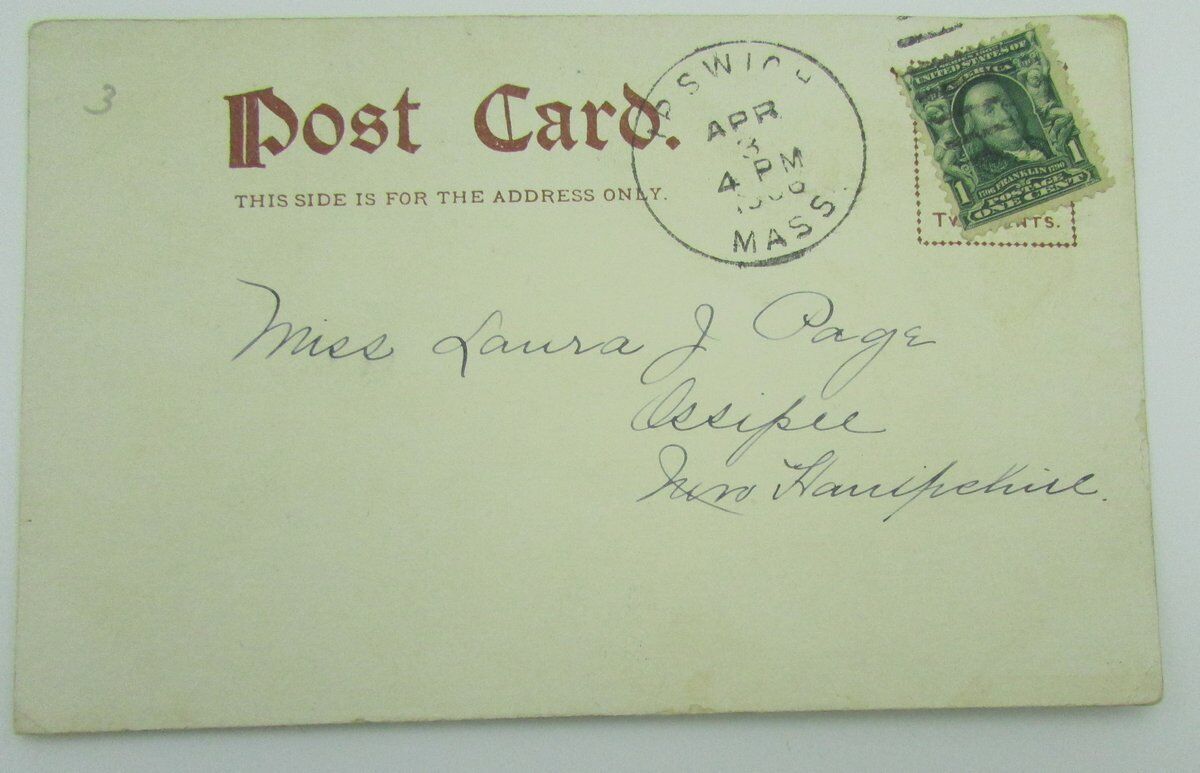 3
Post Card.
THIS SIDE IS FOR THE ADDRESS ONLY.
IPSWICH
APR
3
4 PM
1906
MASS.
UNITED STATES OF
AMERICA
1 1
1706 FRANKLIN 1790
POSTAGE
ONE CENT
Miss Laura J Page
Ossipee
New Hampshire.